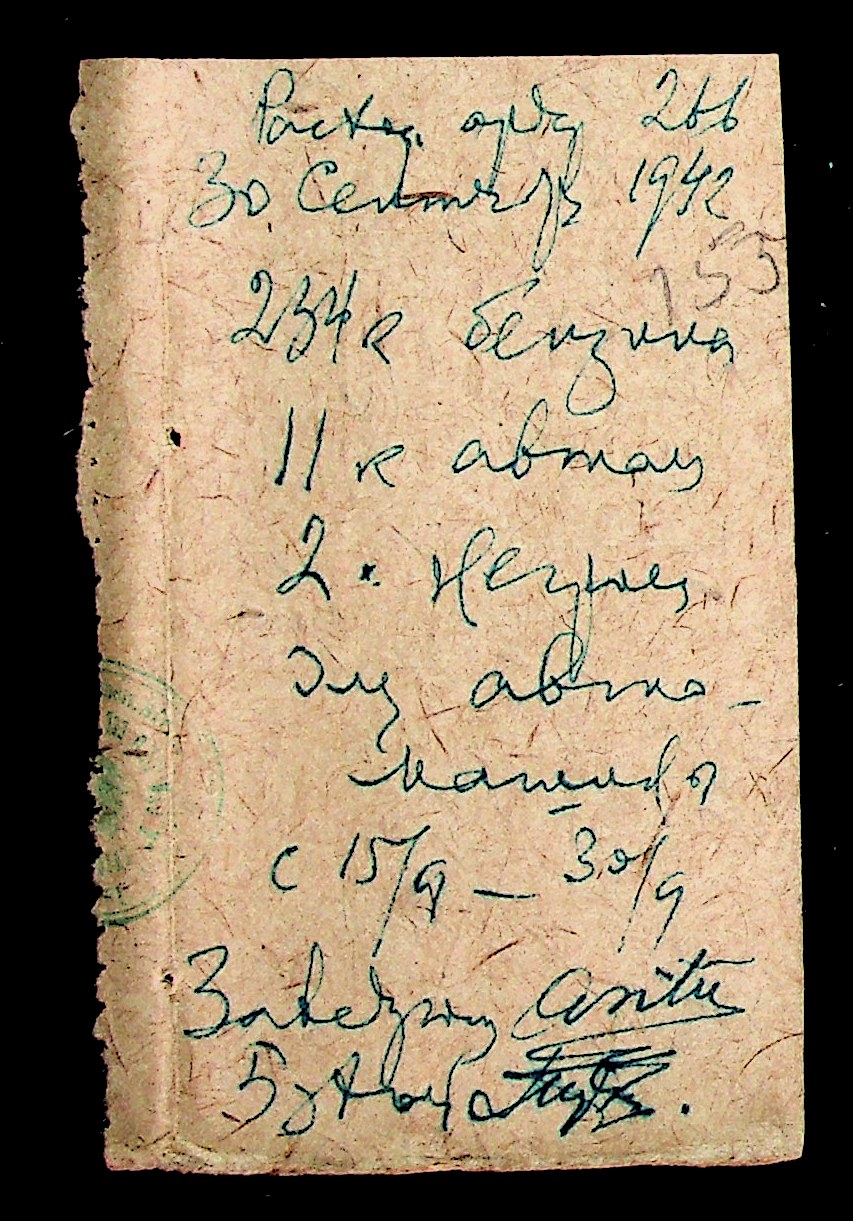 Расход. орд 266
30 Сентябр 1942
153
234 к бензина
11 к автол
2 к.
Для авто-
машины
с 15/9 — 30/9
Заведующ
Бухгал